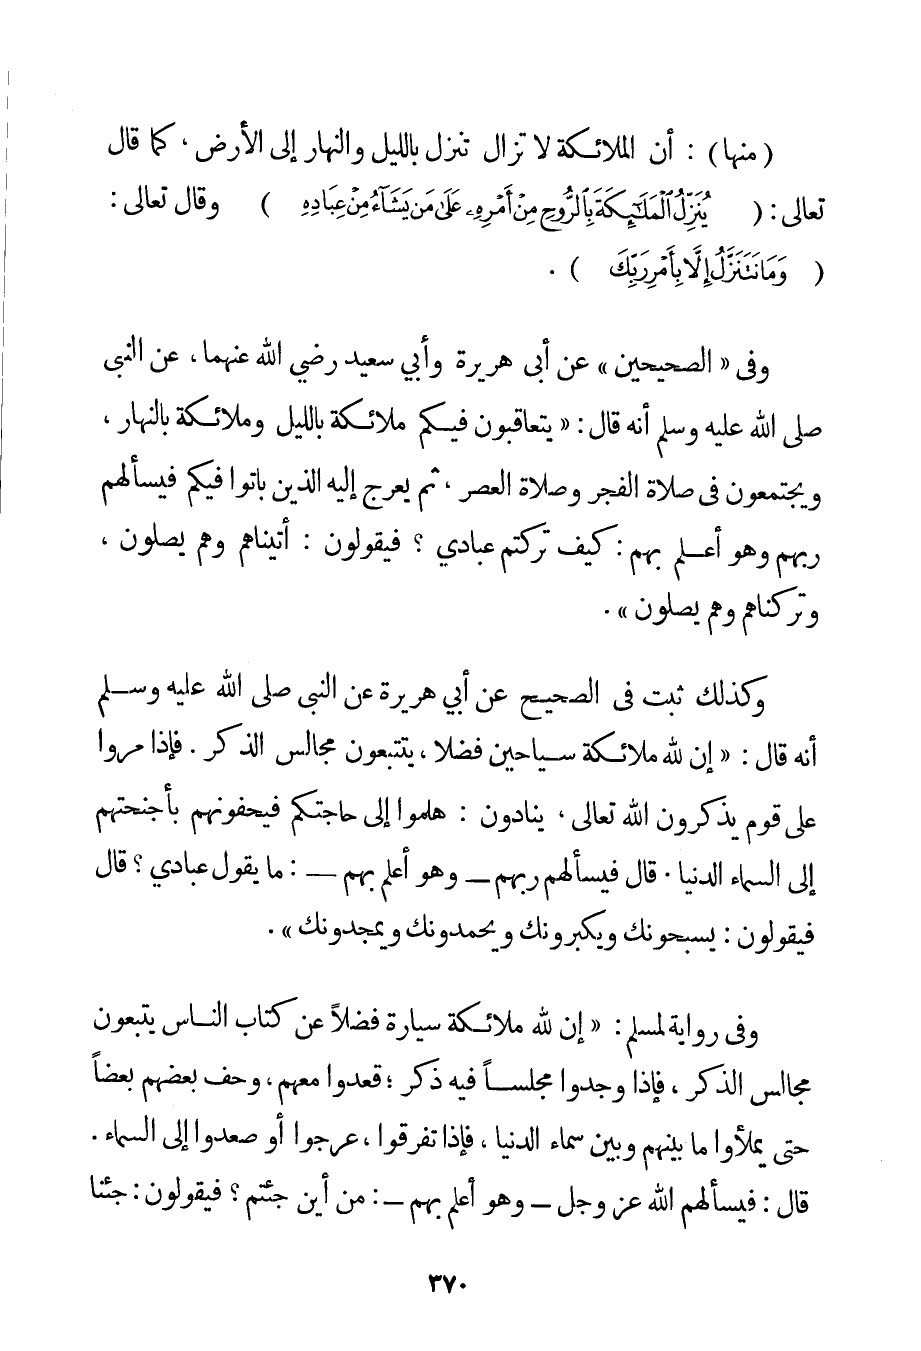 (منها) : أن الملائكة لا تزال تنزل بالليل والنهار إلى الأرض ، كما قال
تعالى : ( يُنَزِّلُ ٱلْمَلَـٰٓئِكَةَ بِٱلرُّوحِ مِنْ أَمْرِهِۦ عَلَىٰ مَن يَشَآءُ مِنْ عِبَادِهِ ) وقال تعالى :
( وَمَا نَتَنَزَّلُ إِلَّا بِأَمْرِ رَبِّكَ ) .
وفى « الصحيحين » عن أبى هريرة وأبي سعيد رضي الله عنهما ، عن النبى
صلى الله عليه وسلم أنه قال : « يتعاقبون فيكم ملائكة بالليل وملائكة بالنهار ،
ويجتمعون فى صلاة الفجر وصلاة العصر ، ثم يعرج إليه الذين باتوا فيكم فيسألهم
ربهم وهو أعلم بهم : كيف تركتم عبادي ؟ فيقولون : أتيناهم وهم يصلون ،
وتركناهم وهم يصلون » .
وكذلك ثبت فى الصحيح عن أبي هريرة عن النبى صلى الله عليه وسلم
أنه قال : « إن لله ملائكة سياحين فضلا ، يتتبعون مجالس الذكر . فإذا مروا
على قوم يذكرون الله تعالى ، ينادون : هلموا إلى حاجتكم فيحفونهم بأجنحتهم
إلى السماء الدنيا . قال فيسألهم ربهم — وهو أعلم بهم — : ما يقول عبادي ؟ قال
فيقولون : يسبحونك ويكبرونك ويحمدونك ويمجدونك » .
وفى رواية لمسلم : « إن لله ملائكة سيارة فضلاً عن كتاب الناس يتبعون
مجالس الذكر ، فإذا وجدوا مجلساً فيه ذكر ؛ قعدوا معهم ، وحف بعضهم بعضاً
حتى يملأوا ما بينهم وبين سماء الدنيا ، فإذا تفرقوا ، عرجوا أو صعدوا إلى السماء .
قال : فيسألهم الله عز وجل — وهو أعلم بهم — : من أين جئتم ؟ فيقولون : جئنا
٣٧٠